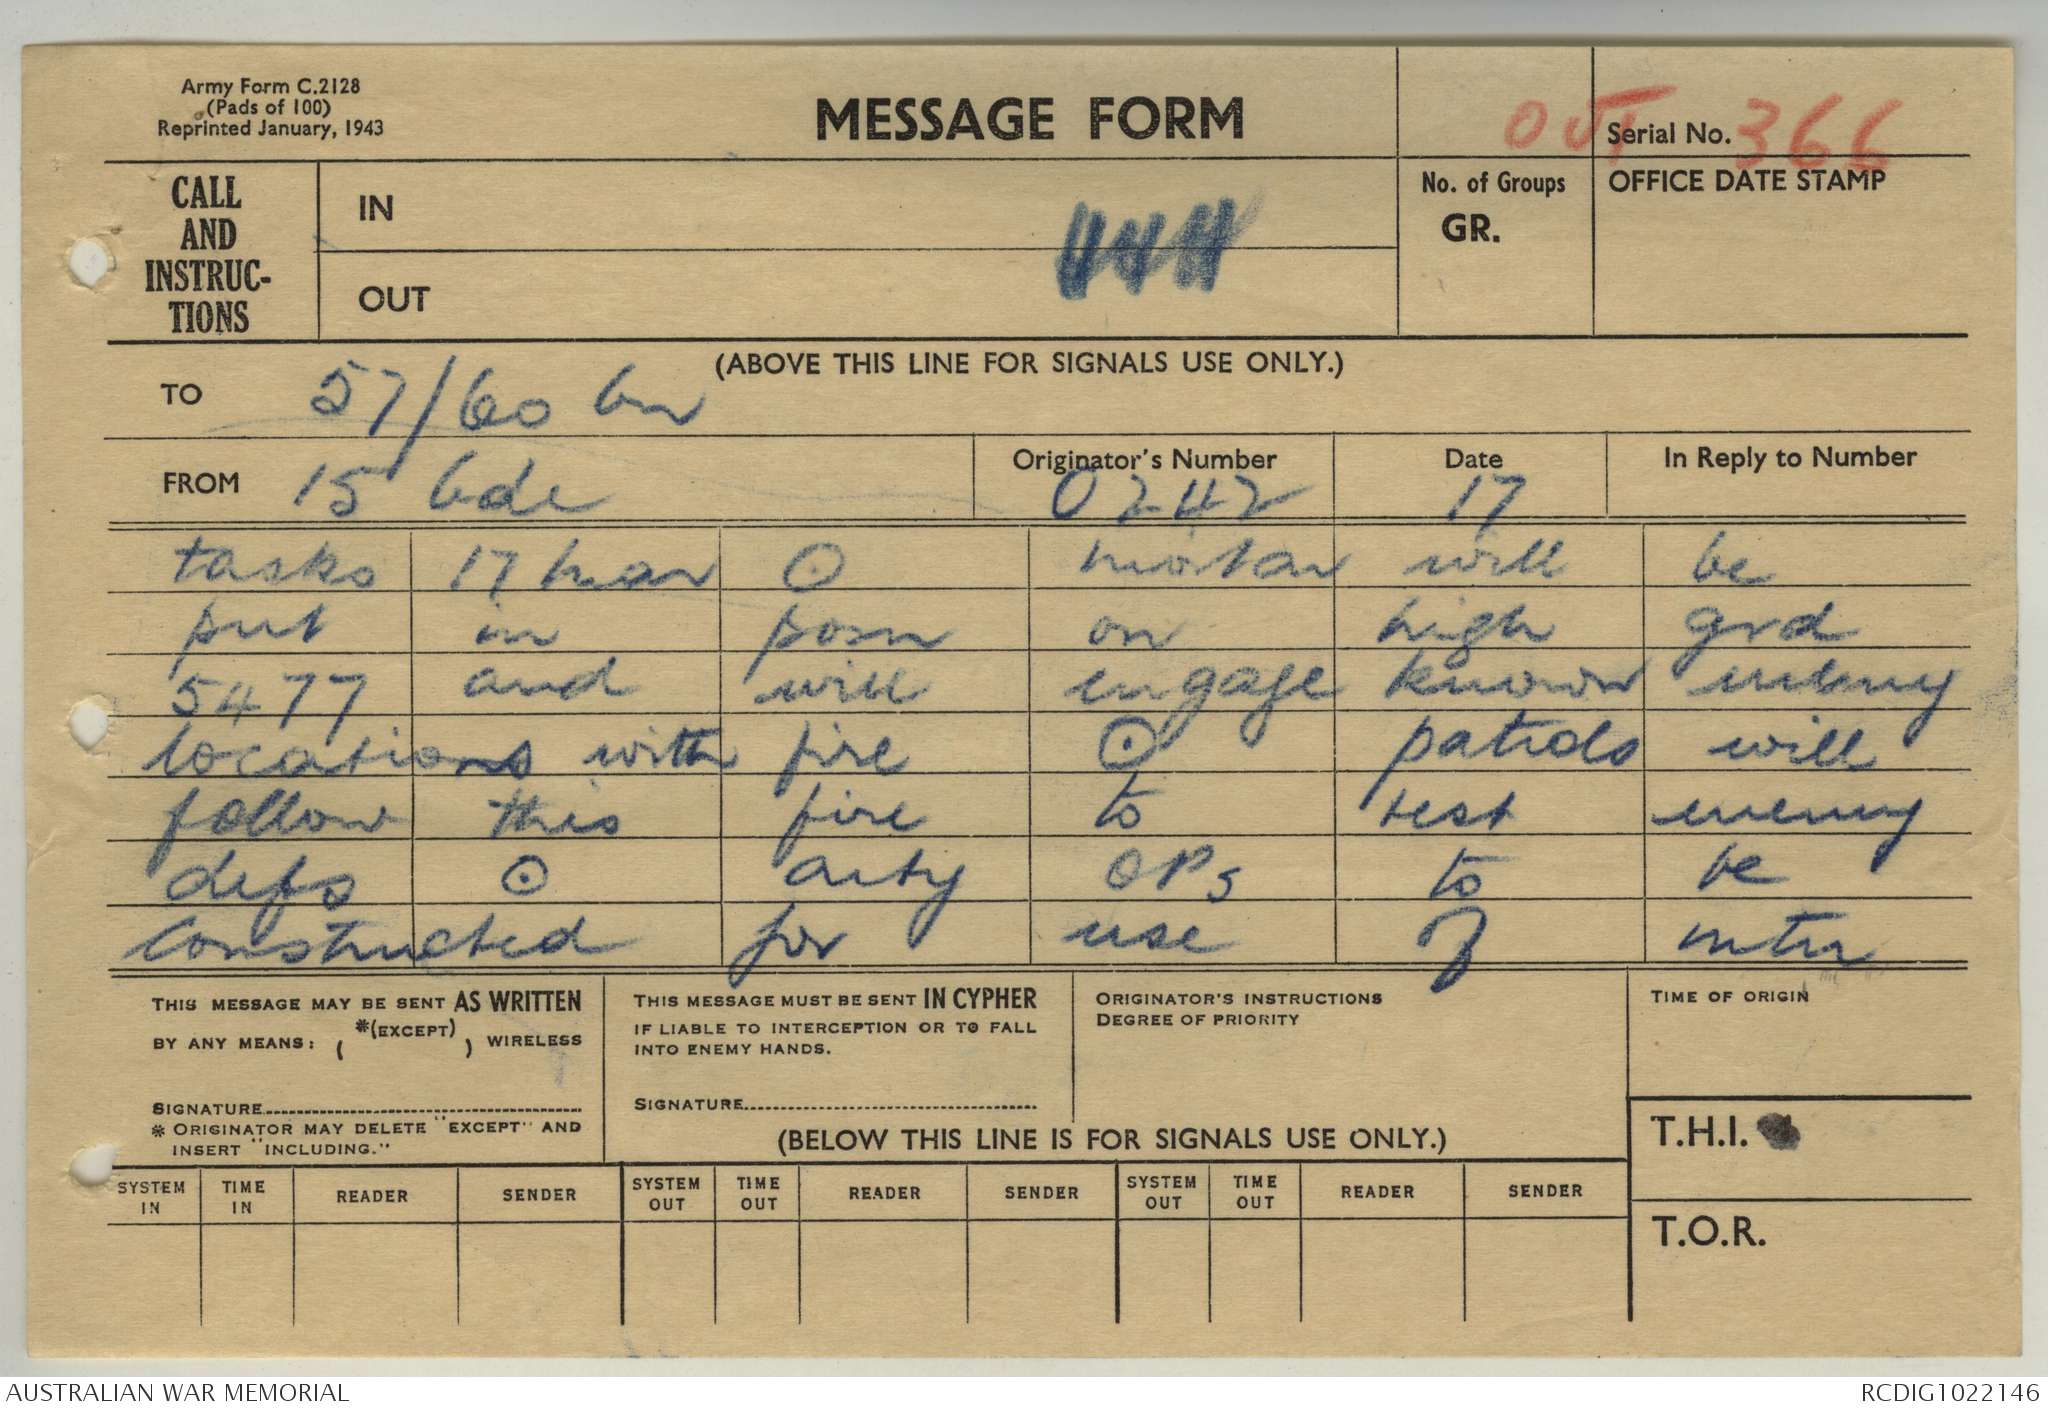 Army Form C.2128
(Pads of 100)
Reprinted January, 1943
MESSAGE FORM
OUT
Serial No. 366
CALL AND INSTRUC-TIONS
IN
OUT
No. of Groups
GR.
OFFICE DATE STAMP
(ABOVE THIS LINE FOR SIGNALS USE ONLY.)
TO 57/60 bn
FROM 15 bde
Originator's Number 0242
Date 17
In Reply to Number
tasks 17 mar ⊙ mortar will be
put in posn on high grd
5477 and will engage known enemy
locations with fire ⊙ patrols will
follow this fire to test enemy
defs ⊙ arty OPs to be
constructed for use of mtr
THIS MESSAGE MAY BE SENT AS WRITTEN
BY ANY MEANS: ( *(EXCEPT) ) WIRELESS
SIGNATURE
* ORIGINATOR MAY DELETE "EXCEPT" AND
INSERT "INCLUDING."
THIS MESSAGE MUST BE SENT IN CYPHER
IF LIABLE TO INTERCEPTION OR TO FALL
INTO ENEMY HANDS.
SIGNATURE
ORIGINATOR'S INSTRUCTIONS
DEGREE OF PRIORITY
TIME OF ORIGIN
(BELOW THIS LINE IS FOR SIGNALS USE ONLY.)
T.H.I.
T.O.R.
SYSTEM IN TIME IN READER SENDER SYSTEM OUT TIME OUT READER SENDER SYSTEM OUT TIME OUT READER SENDER
AUSTRALIAN WAR MEMORIAL
RCDIG1022146